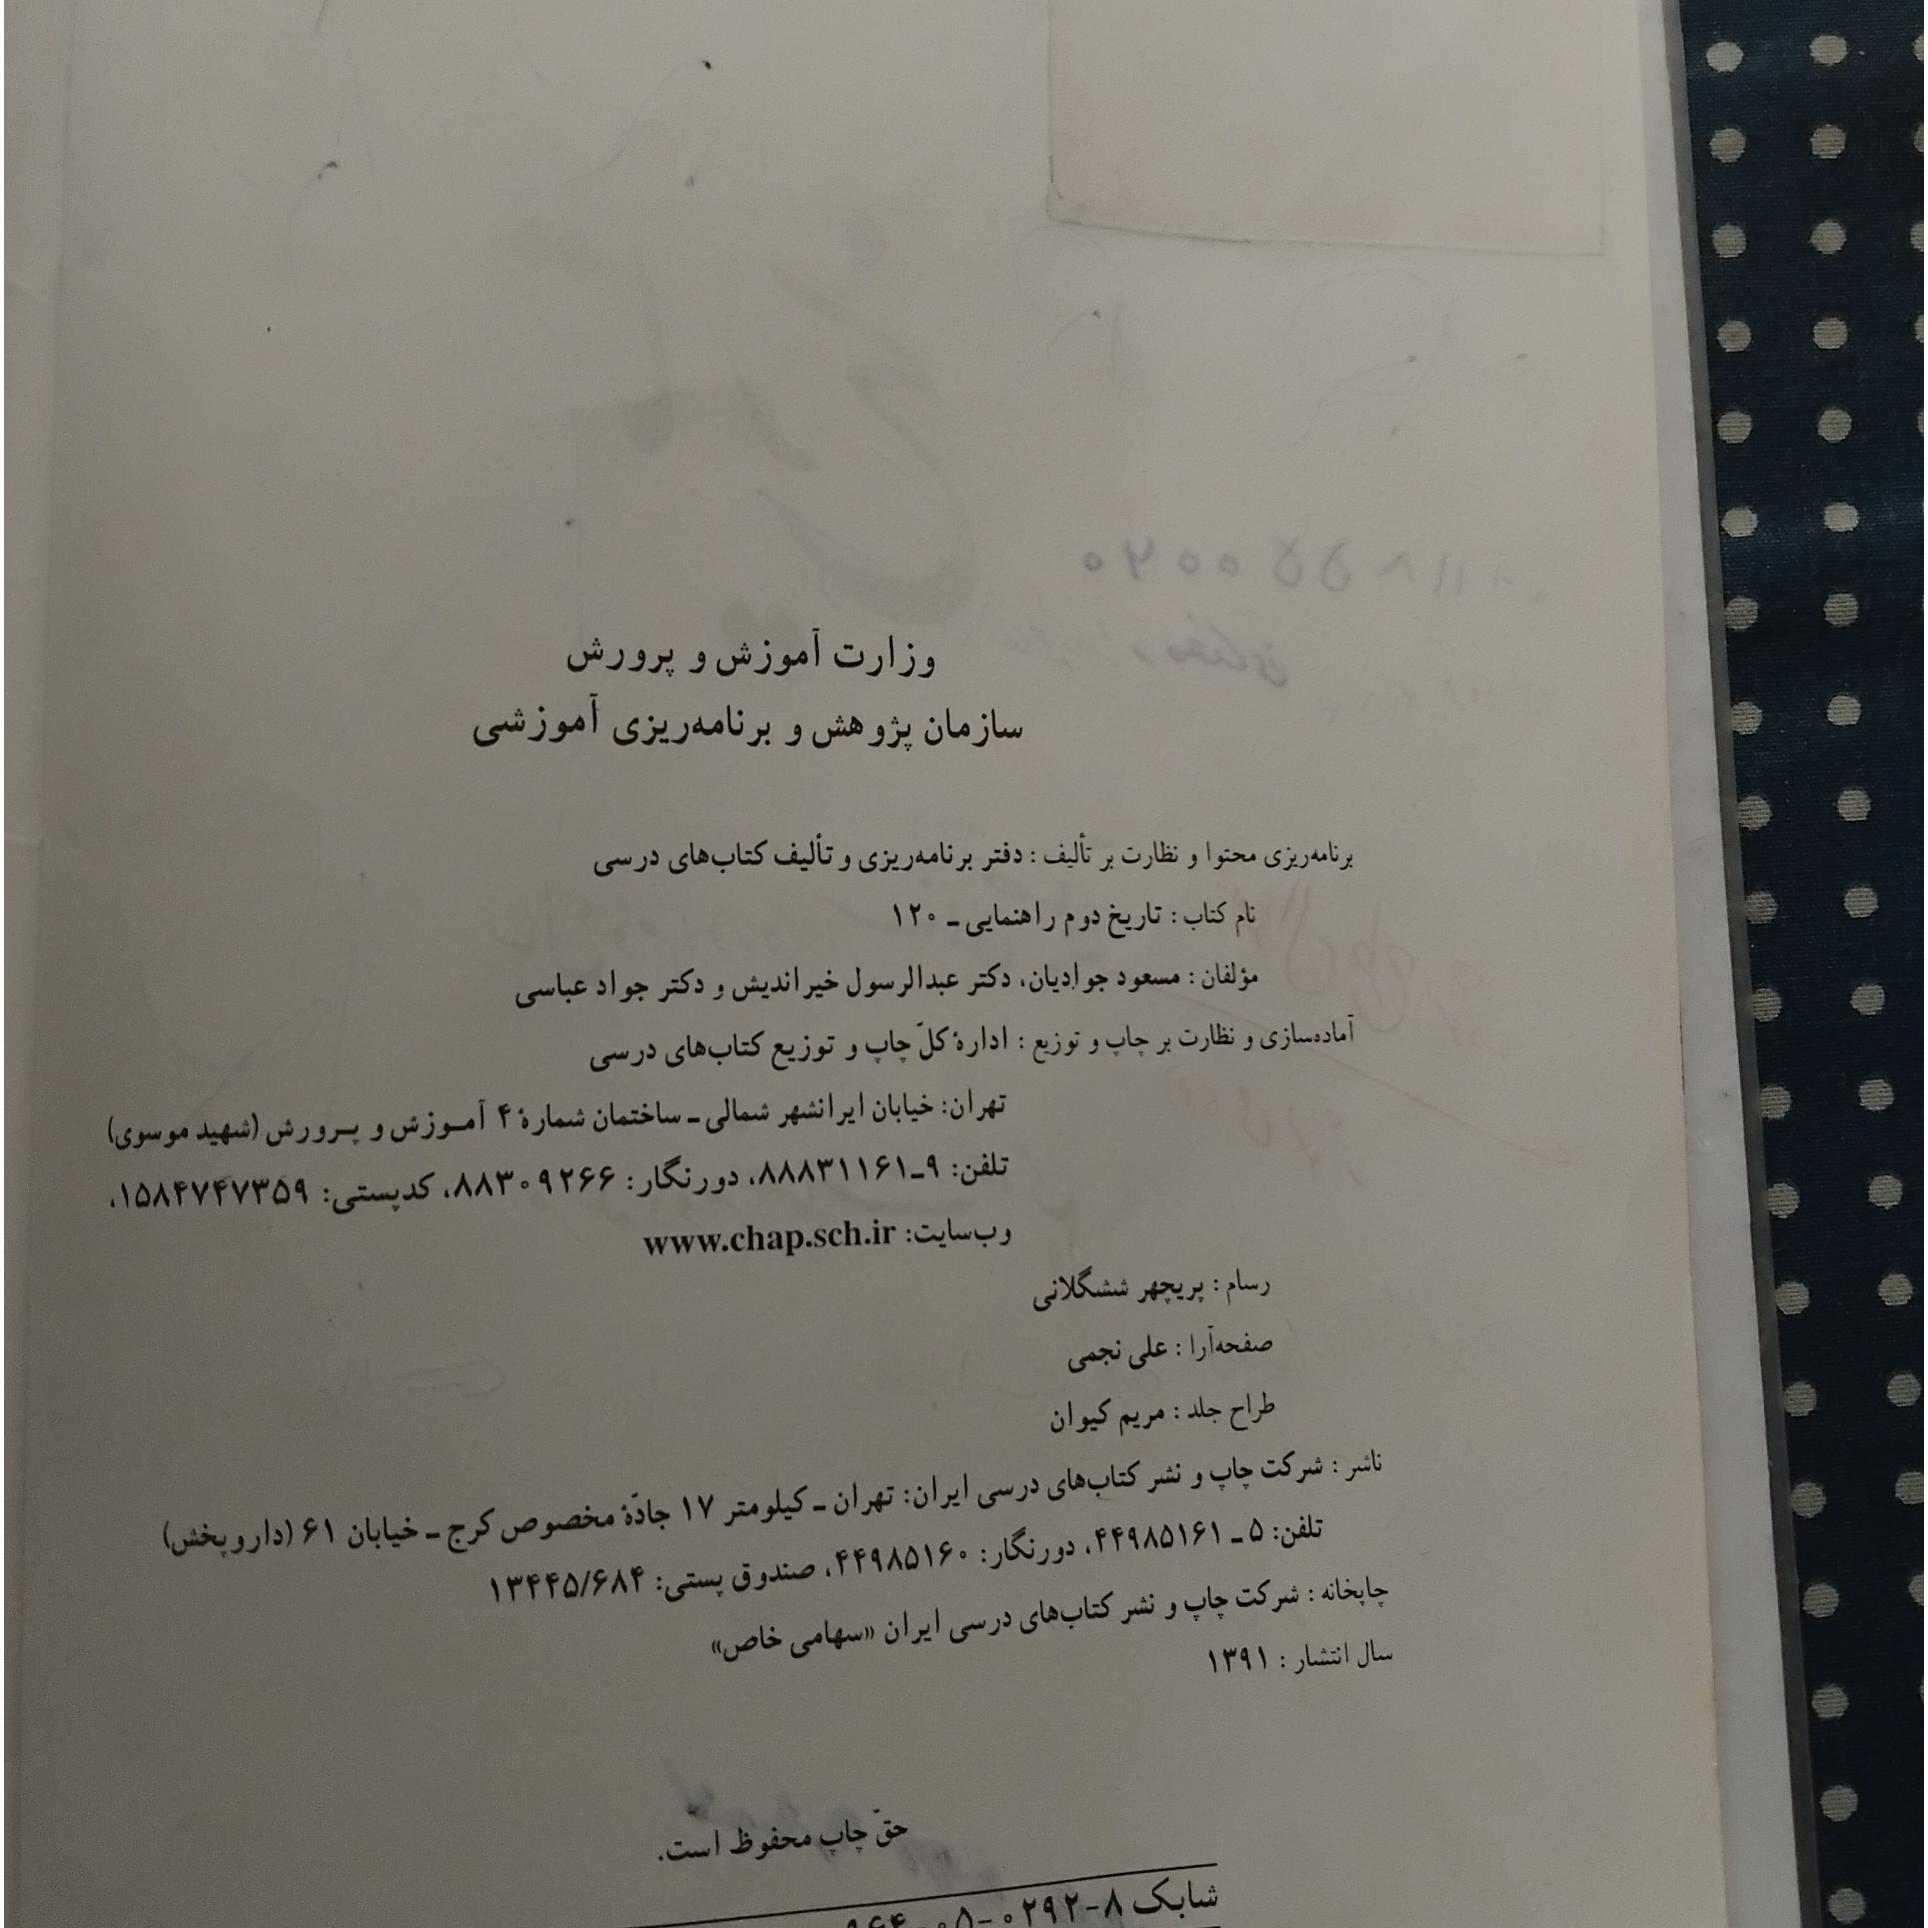 وزارت آموزش و پرورش
سازمان پژوهش و برنامه‌ریزی آموزشی
برنامه‌ریزی محتوا و نظارت بر تألیف : دفتر برنامه‌ریزی و تألیف کتاب‌های درسی
نام کتاب : تاریخ دوم راهنمایی ـ ۱۲۰
مؤلفان : مسعود جوادیان، دکتر عبدالرسول خیراندیش و دکتر جواد عباسی
آماده‌سازی و نظارت بر چاپ و توزیع : ادارهٔ کلّ چاپ و توزیع کتاب‌های درسی
تهران: خیابان ایرانشهر شمالی ـ ساختمان شمارهٔ ۴ آمـوزش و پـرورش (شهید موسوی)
تلفن: ۹ـ۸۸۸۳۱۱۶۱، دورنگار: ۸۸۳۰۹۲۶۶، کدپستی: ۱۵۸۴۷۴۷۳۵۹،
وب‌سایت: www.chap.sch.ir
رسام : پریچهر ششگلانی
صفحه‌آرا : علی نجمی
طراح جلد : مریم کیوان
ناشر : شرکت چاپ و نشر کتاب‌های درسی ایران: تهران ـ کیلومتر ۱۷ جادّهٔ مخصوص کرج ـ خیابان ۶۱ (داروپخش)
تلفن: ۵ ـ ۴۴۹۸۵۱۶۱، دورنگار: ۴۴۹۸۵۱۶۰، صندوق پستی: ۱۳۴۴۵/۶۸۴
چاپخانه : شرکت چاپ و نشر کتاب‌های درسی ایران «سهامی خاص»
سال انتشار : ۱۳۹۱
حقّ چاپ محفوظ است.
شابک ۸-۰۲۹۲-۰۵-۹۶۴